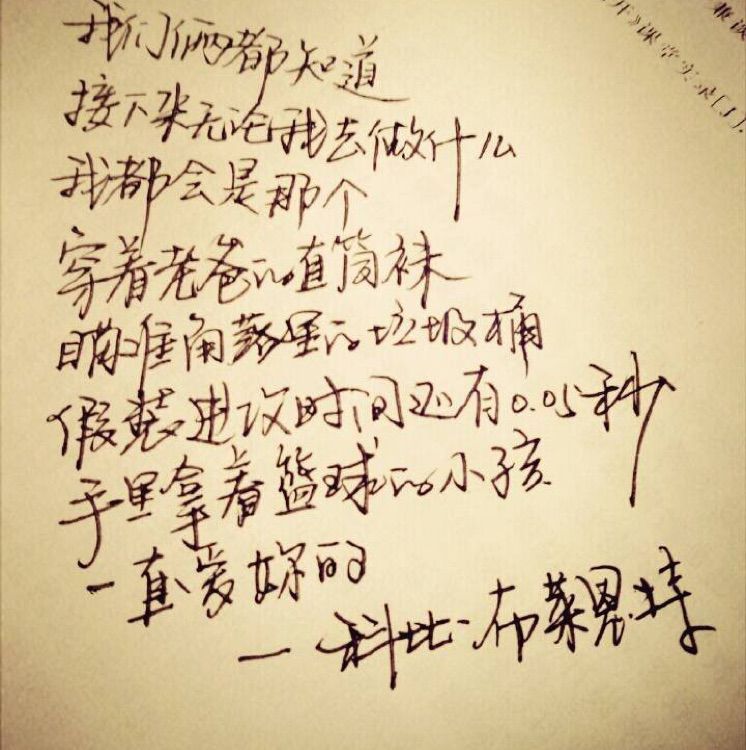 我们俩都知道
接下来无论我去做什么
我都会是那个
穿着老爸的直筒袜
瞄准角落里的垃圾桶
假装进攻时间还有0.05秒
手里拿着篮球的小孩
一直爱妳的
— 科比·布莱恩特
开》课堂实录[J].